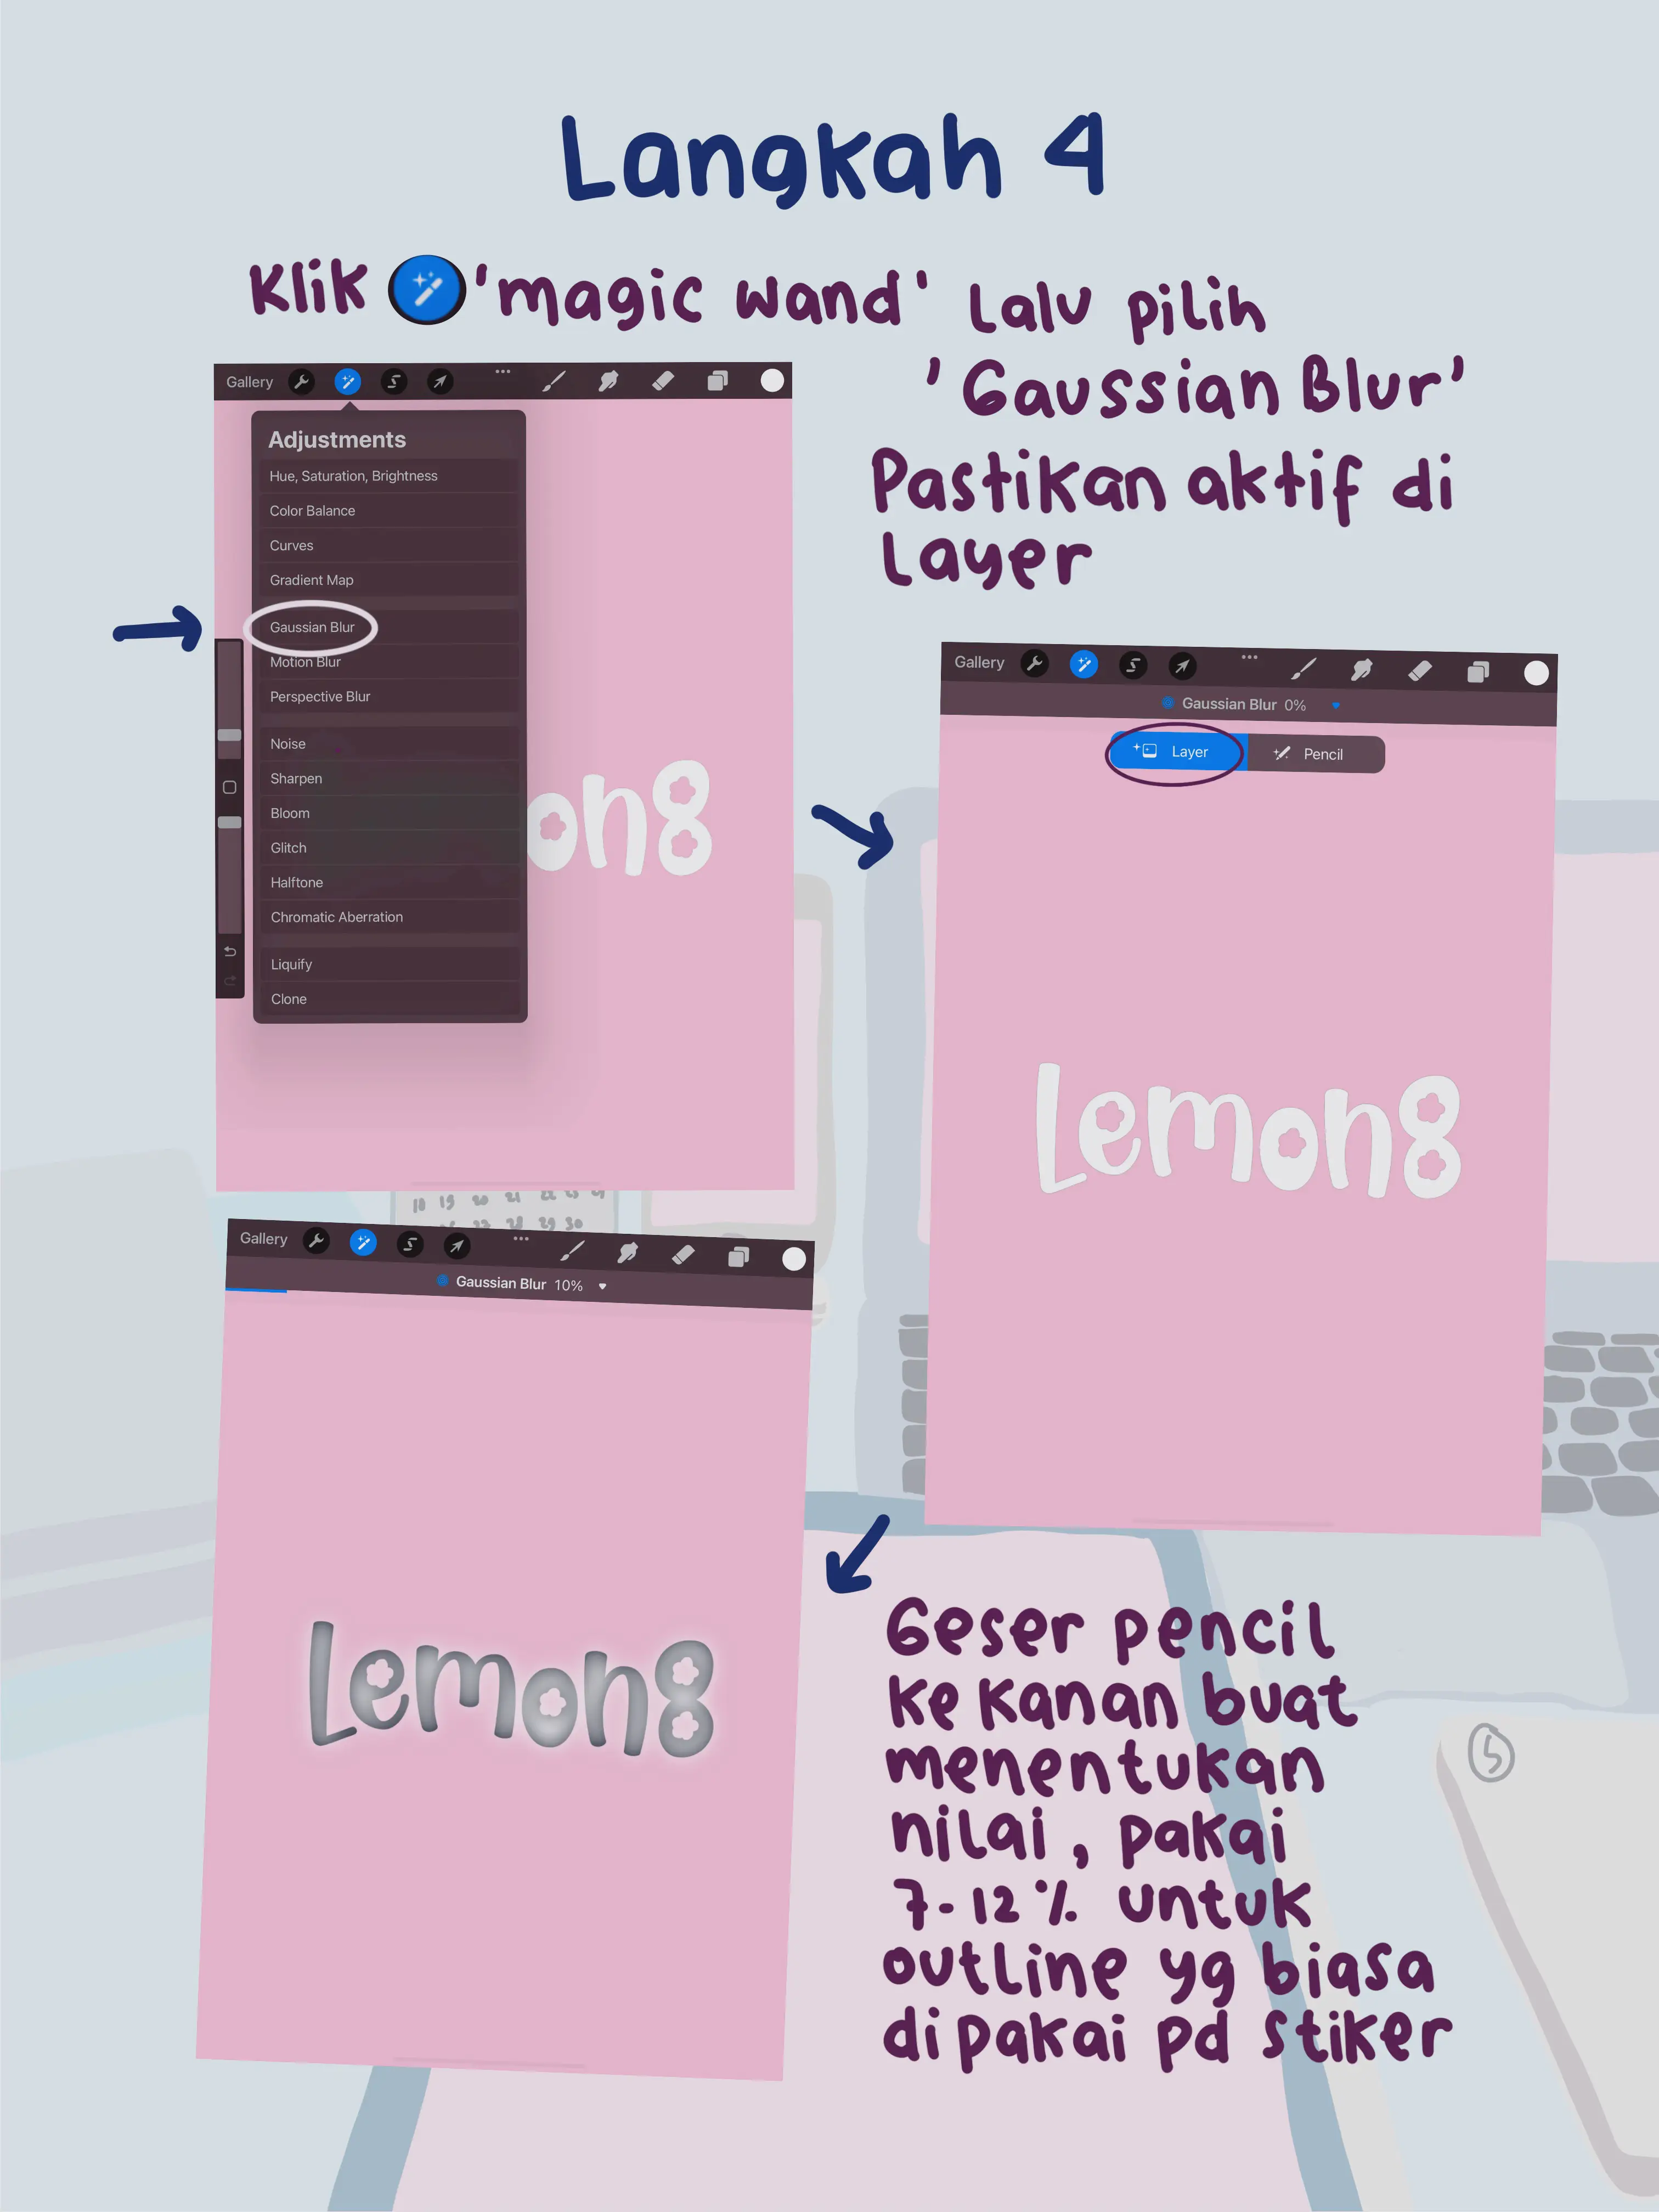 Langkah 4
Klik 'magic wand' lalu pilih
'Gaussian Blur'
Pastikan aktif di
Layer
Gallery
Adjustments
Hue, Saturation, Brightness
Color Balance
Curves
Gradient Map
Gaussian Blur
Motion Blur
Perspective Blur
Noise
Sharpen
Bloom
Glitch
Halftone
Chromatic Aberration
Liquify
Clone
on8
Gallery
Gaussian Blur 0%
Layer Pencil
Lemon8
18 19 20 21 22 23
27 28 29 30
Gallery
Gaussian Blur 10%
Lemon8
Geser pencil
ke kanan buat
menentukan
nilai, pakai
7-12% untuk
outline yg biasa
di pakai pd stiker